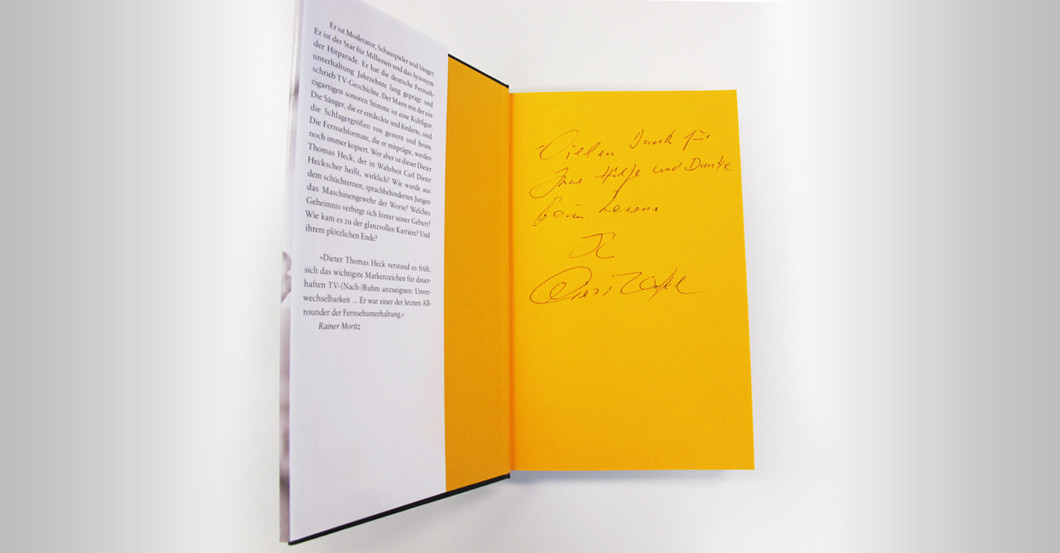 Er ist Moderator, Schauspieler und Sänger.
Er ist der Star für Millionen und das Synonym
der Hitparade. Er hat die deutsche Fernseh-
unterhaltung Jahrzehnte lang geprägt und
schrieb TV-Geschichte. Der Mann mit der ein-
zigartigen sonoren Stimme ist eine Kultfigur.
Die Sänger, die er entdeckte und förderte, sind
die Schlagergrößen von gestern und heute.
Die Fernsehformate, die er mitprägte, werden
noch immer kopiert. Wer aber ist dieser Dieter
Thomas Heck, der in Wahrheit Carl Dieter
Heckscher heißt, wirklich? Wie wurde aus
dem schüchternen, sprachbehinderten Jungen
das Maschinengewehr der Worte? Welches
Geheimnis verbirgt sich hinter seiner Geburt?
Wie kam es zu der glanzvollen Karriere? Und
ihrem plötzlichen Ende?
»Dieter Thomas Heck verstand es früh,
sich das wichtigste Markenzeichen für dauer-
haften TV-(Nach-)Ruhm anzueignen: Unver-
wechselbarkeit ... Er war einer der letzten All-
rounder der Fernsehunterhaltung.«
Rainer Moritz
Vielen Dank für
Ihre Hilfe und Danke
beim Lesen